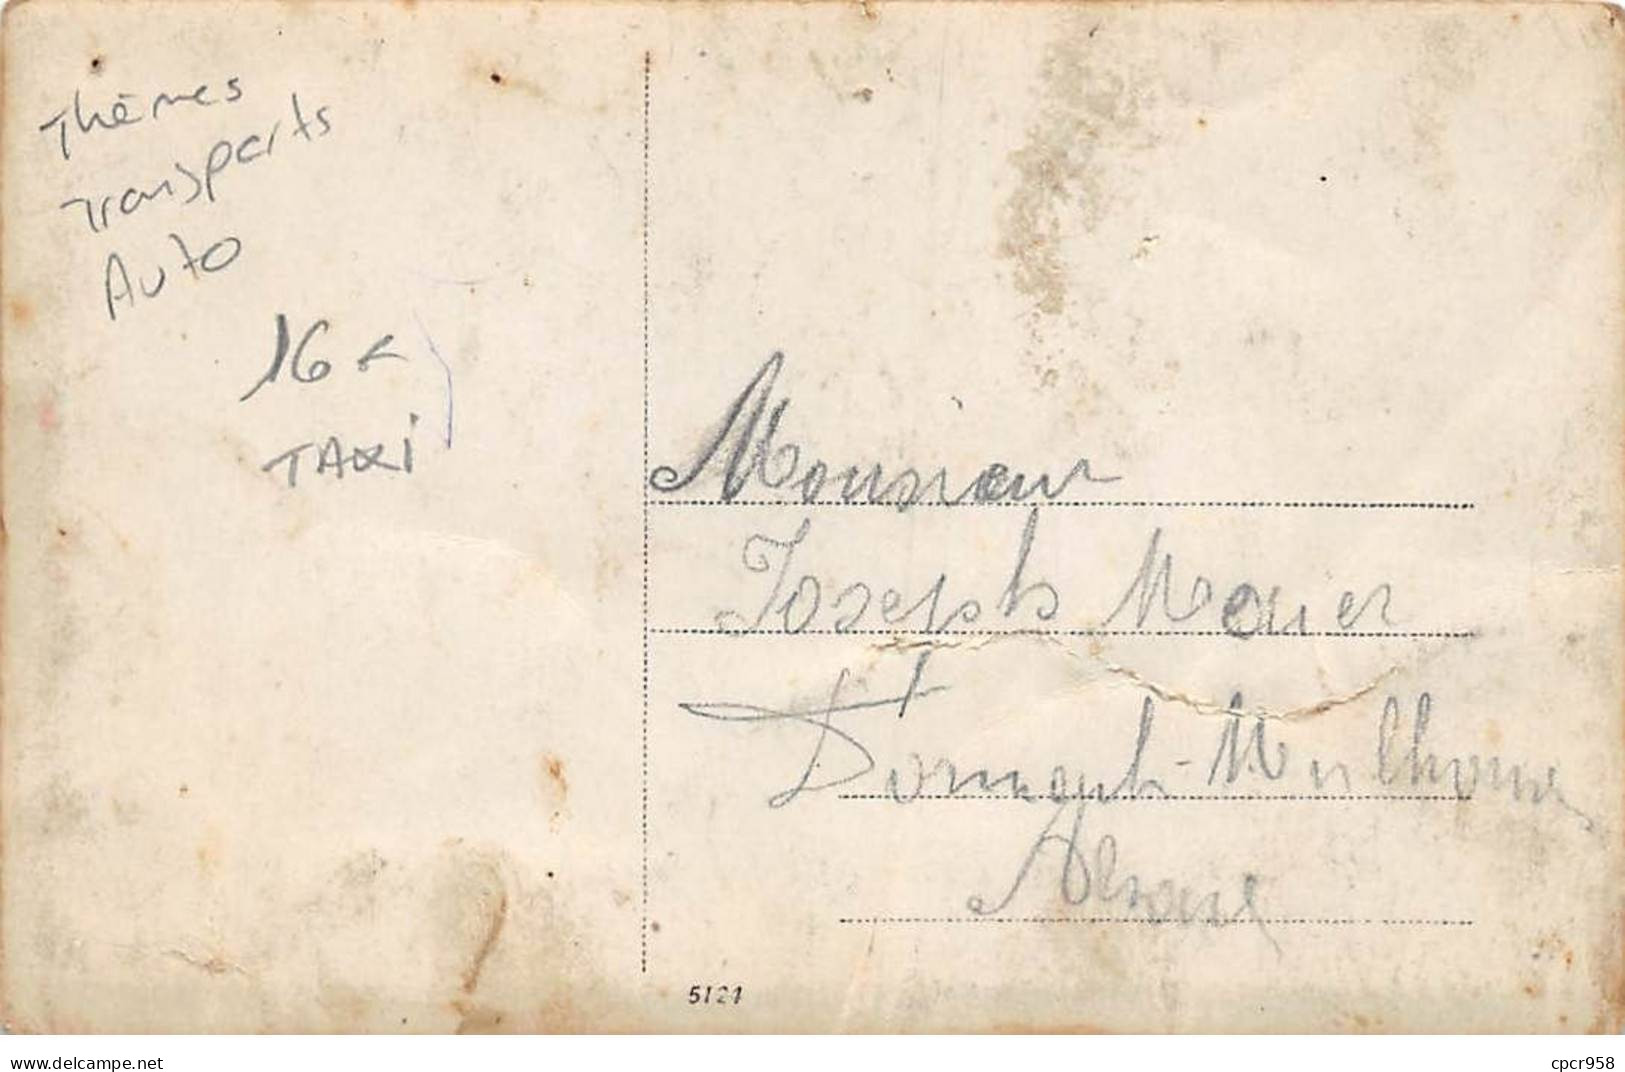 Thèmes
Transports
Auto
16 €
TAXI
Monsieur
Joseph Maier
Dornach-Mulhouse
Alsace
5121
www.delcampe.net
cpcr958